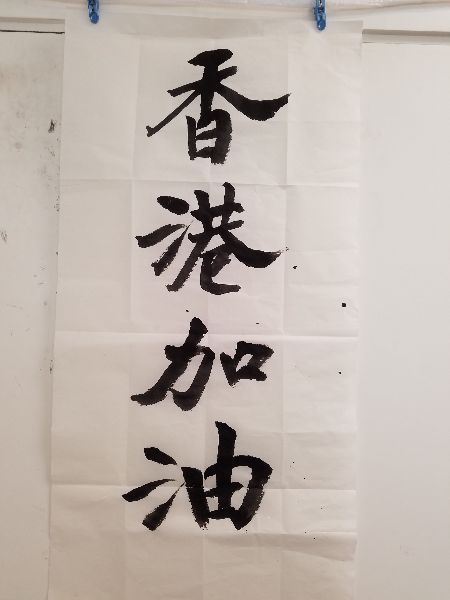 香港加油